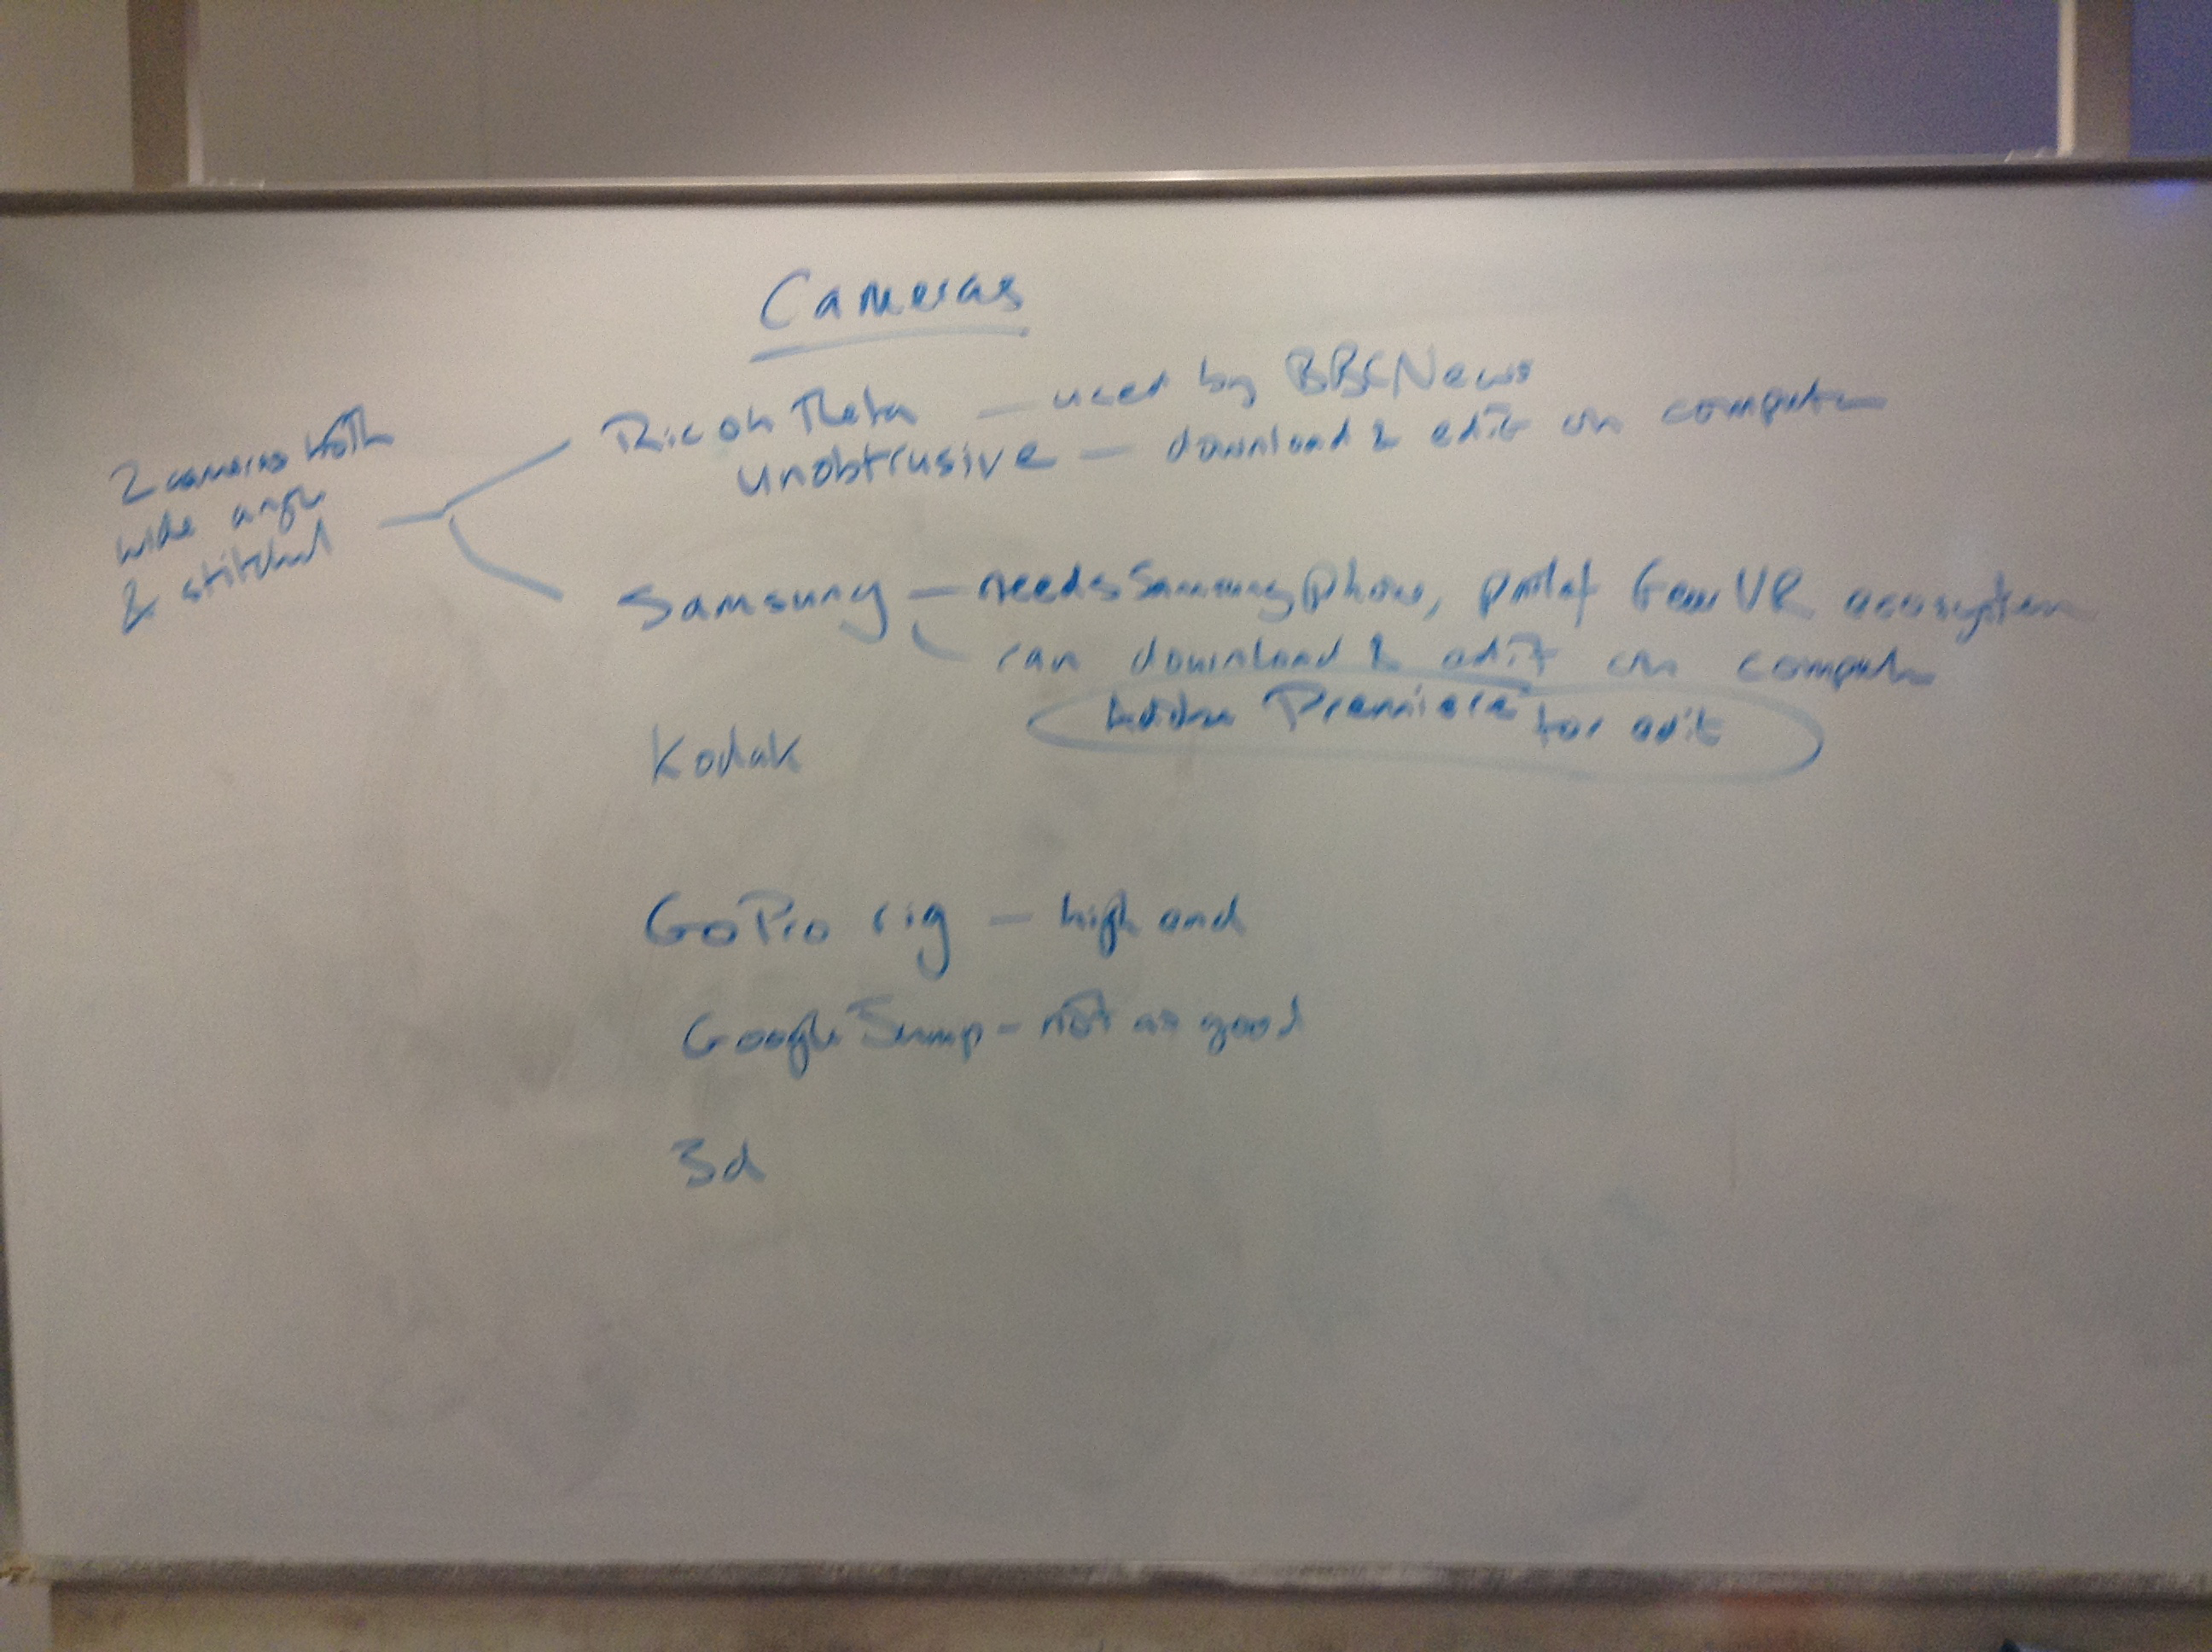 Cameras
2 cameras both
wide angle
& stitched
Ricoh Theta — used by BBC News
unobtrusive — download & edit on computer
Samsung — needs Samsung phone, part of Gear VR ecosystem
can download & edit on computer
Adobe Premiere for edit
Kodak
GoPro rig — high end
Google Jump - not as good
3d